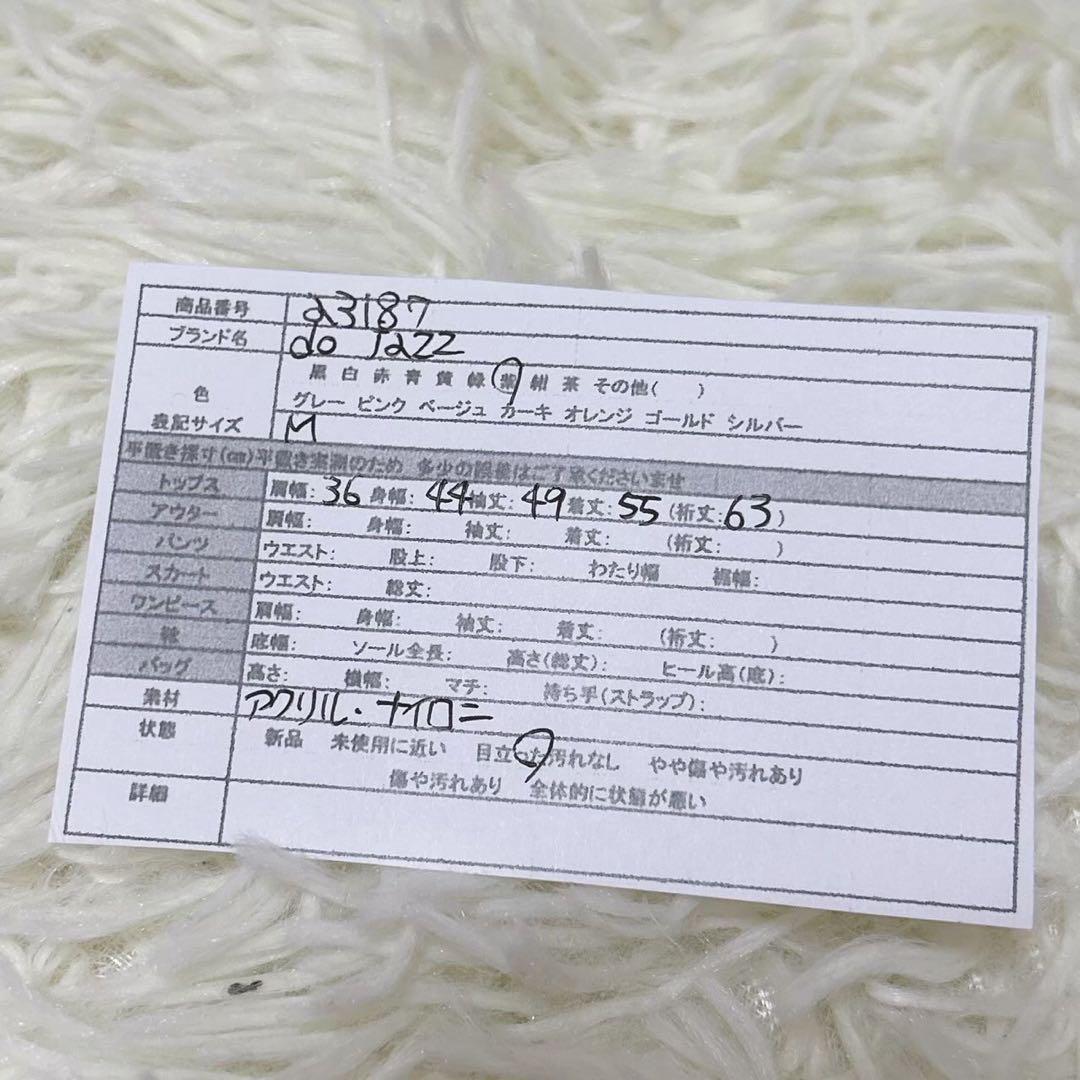 商品番号 a3187
ブランド名 do Jazz
色 黒 白 赤 青 黄 緑 紫 紺 茶 その他( )
グレー ピンク ベージュ カーキ オレンジ ゴールド シルバー
表記サイズ M
平置き採寸(cm)平置き実測のため 多少の誤差はご了承くださいませ
トップス 肩幅: 36 身幅: 44 袖丈: 49 着丈: 55 (裄丈: 63)
アウター 肩幅: 身幅: 袖丈: 着丈: (裄丈: )
パンツ ウエスト: 股上: 股下: わたり幅 裾幅:
スカート ウエスト: 総丈:
ワンピース 肩幅: 身幅: 袖丈: 着丈: (裄丈: )
靴 底幅: ソール全長: 高さ(総丈): ヒール高(底):
バッグ 高さ: 横幅: マチ: 持ち手(ストラップ):
素材 アクリル・ナイロン
状態 新品 未使用に近い 目立った汚れなし やや傷や汚れあり
傷や汚れあり 全体的に状態が悪い
詳細